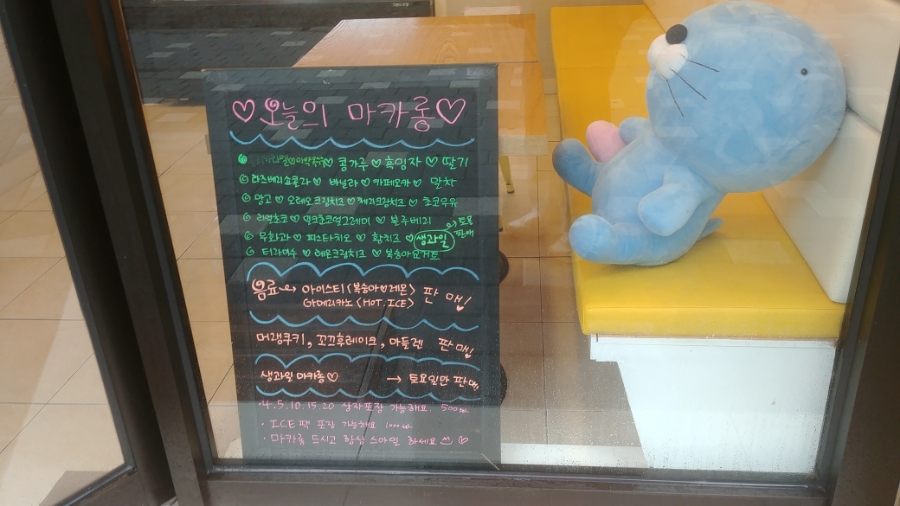 ♡오늘의 마카롱♡
♡ 콩가루 ♡ 흑임자 ♡ 딸기
라즈베리쇼콜라 ♡ 바닐라 ♡ 카페모카 ♡ 말차
망고 ♡ 오레오크림치즈 ♡ 초코우유
리얼초코 ♡ 얼그레이 ♡ 블루베리
무화과 ♡ 피스타치오 ♡ 황치즈 ♡ 생과일 → 토요판매
티라미수 ♡ 레몬크림치즈 ♡ 복숭아요거트
음료 → 아이스티 (복숭아♡레몬) 판매!
아메리카노 (HOT, ICE)
머랭쿠키, 꼬끄후레이크, 마들렌 판매!
생과일 마카롱♡ → 토요일만 판매
· 4. 5. 10. 15. 20 상자포장 가능해요. 500
· ICE 팩 포장 가능해요 1000
· 마카롱 드시고 항상 스마일 하세요 ♡